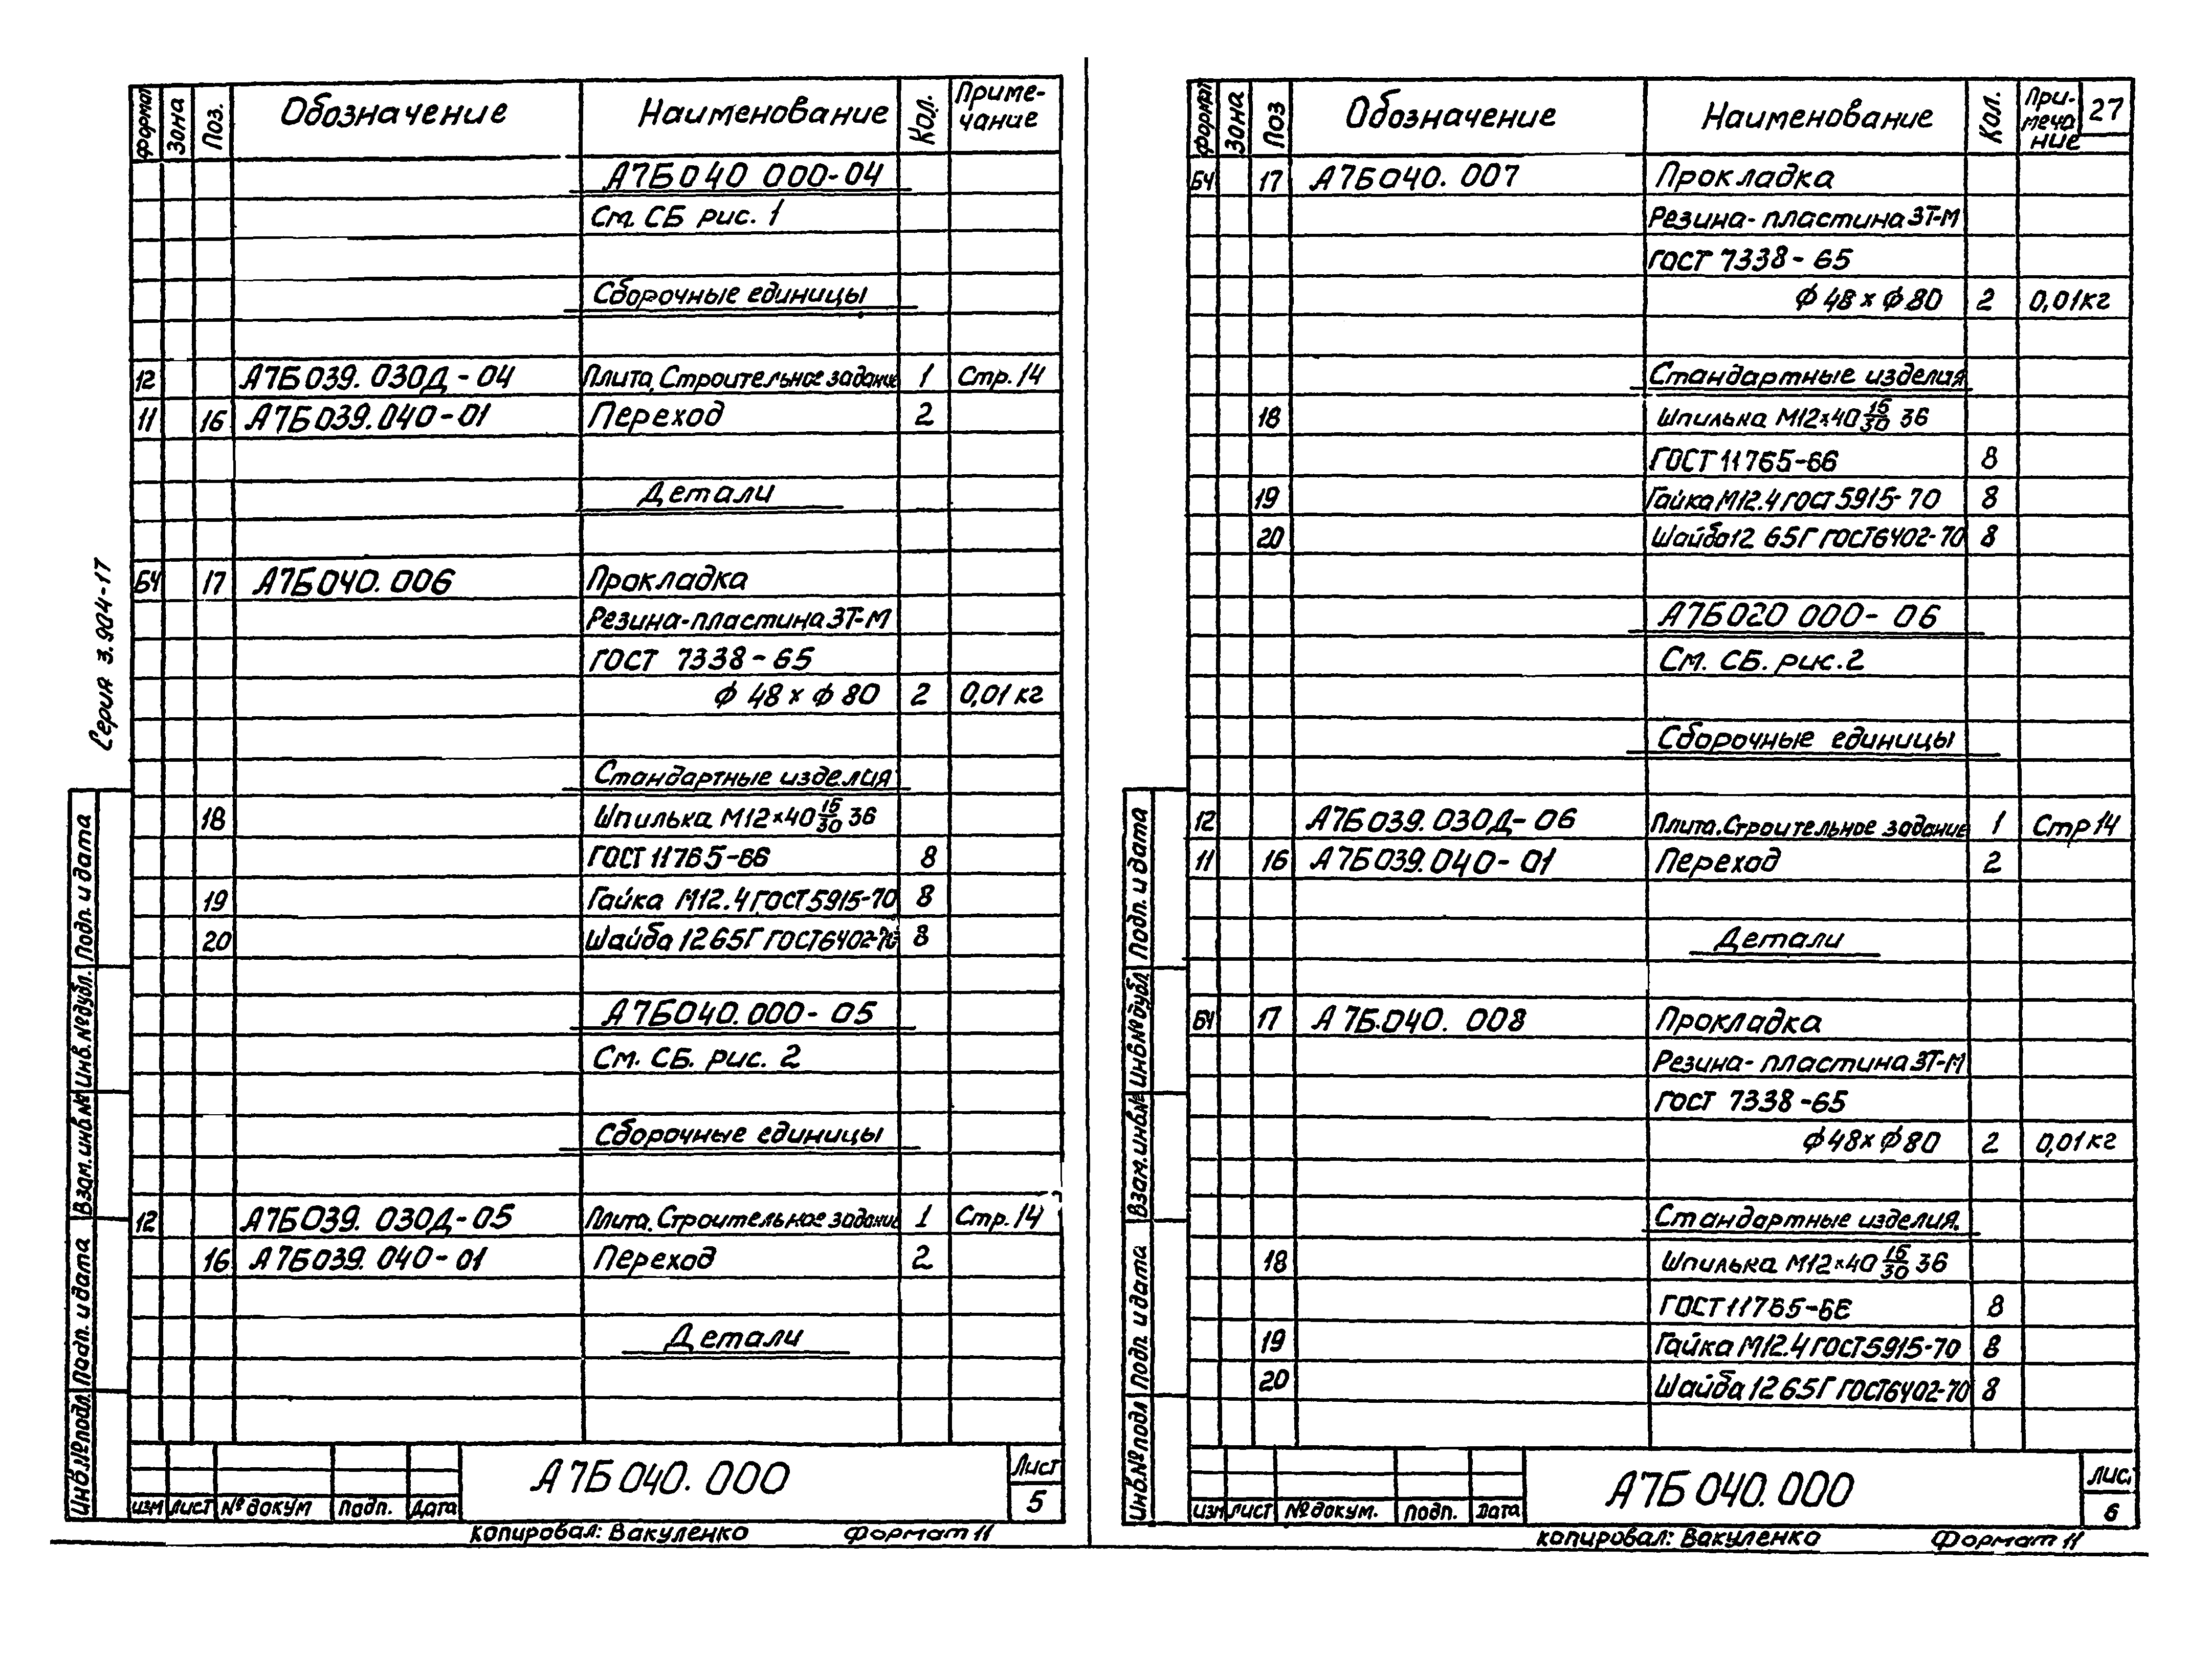 Серия 3.904-17
Формат Зона Поз. Обозначение Наименование Кол. Приме-
чание
А7Б040 000-04
См. СБ рис. 1
Сборочные единицы
12 А7Б039. 030Д-04 Плита. Строительное задание 1 Стр. 14
11 16 А7Б039.040-01 Переход 2
Детали
БЧ 17 А7Б040. 006 Прокладка
Резина-пластина 3Т-М
ГОСТ 7338-65
ф 48 х ф 80 2 0,01 кг
Стандартные изделия
18 Шпилька М12х40 15/30 36
ГОСТ 11765-66 8
19 Гайка М12.4 ГОСТ 5915-70 8
20 Шайба 12 65Г ГОСТ 6402-70 8
А7Б040.000-05
См. СБ. рис. 2
Сборочные единицы
12 А7Б039. 030Д-05 Плита. Строительное задание 1 Стр. 14
16 А7Б039. 040-01 Переход 2
Детали
Инв.№ подл. Подп. и дата Взам.инв.№ Инв.№ дубл. Подп. и дата
изм лист № докум подп. дата
А7Б 040. 000
Лист
5
копировал: Вакуленко Формат 11
27
Формат Зона Поз Обозначение Наименование Кол. При-
меча
ние
БЧ 17 А7Б040. 007 Прокладка
Резина-пластина 3Т-М
ГОСТ 7338-65
ф 48 х ф 80 2 0,01 кг
Стандартные изделия
18 Шпилька М12х40 15/30 36
ГОСТ 11765-66 8
19 Гайка М12.4 ГОСТ 5915-70 8
20 Шайба 12 65Г ГОСТ 6402-70 8
А7Б020 000-06
См. СБ. рис. 2
Сборочные единицы
12 А7Б039.030Д-06 Плита. Строительное задание 1 Стр 14
11 16 А7Б039.040-01 Переход 2
Детали
БЧ 17 А7Б.040. 008 Прокладка
Резина-пластина 3Т-М
ГОСТ 7338-65
ф 48 х ф 80 2 0,01 кг
Стандартные изделия.
18 Шпилька М12х40 15/30 36
ГОСТ 11765-66 8
19 Гайка М12.4 ГОСТ 5915-70 8
20 Шайба 12 65Г ГОСТ 6402-70 8
Инв.№ подл Подп. и дата Взам.инв.№ Инв.№ дубл Подп. и дата
изм лист № докум. подп. дата
А7Б 040. 000
Лис.
6
копировал: Вакуленко Формат 11